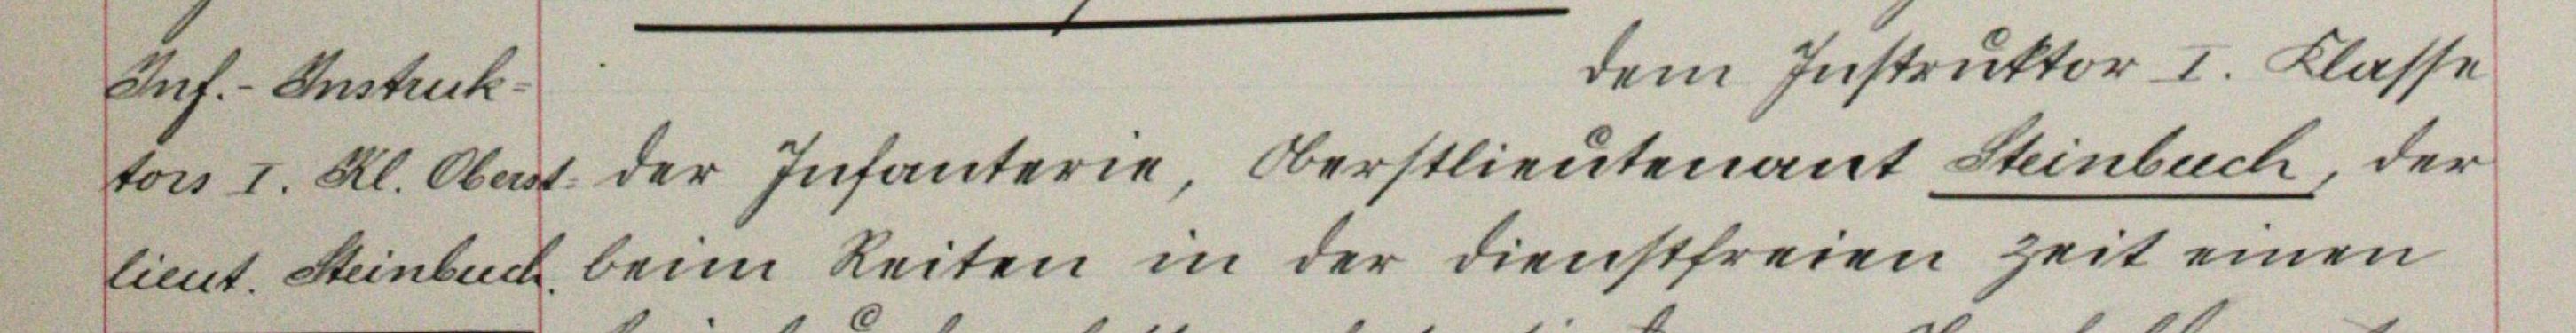 Inf.-Instruk-
tors I. Kl. Oberst-
lieut. Steinbuch.
dem Instruktor I. Klasse
der Infanterie, Oberstlieutenant Steinbuch, der
beim Reiten in der dienstfreien Zeit einen